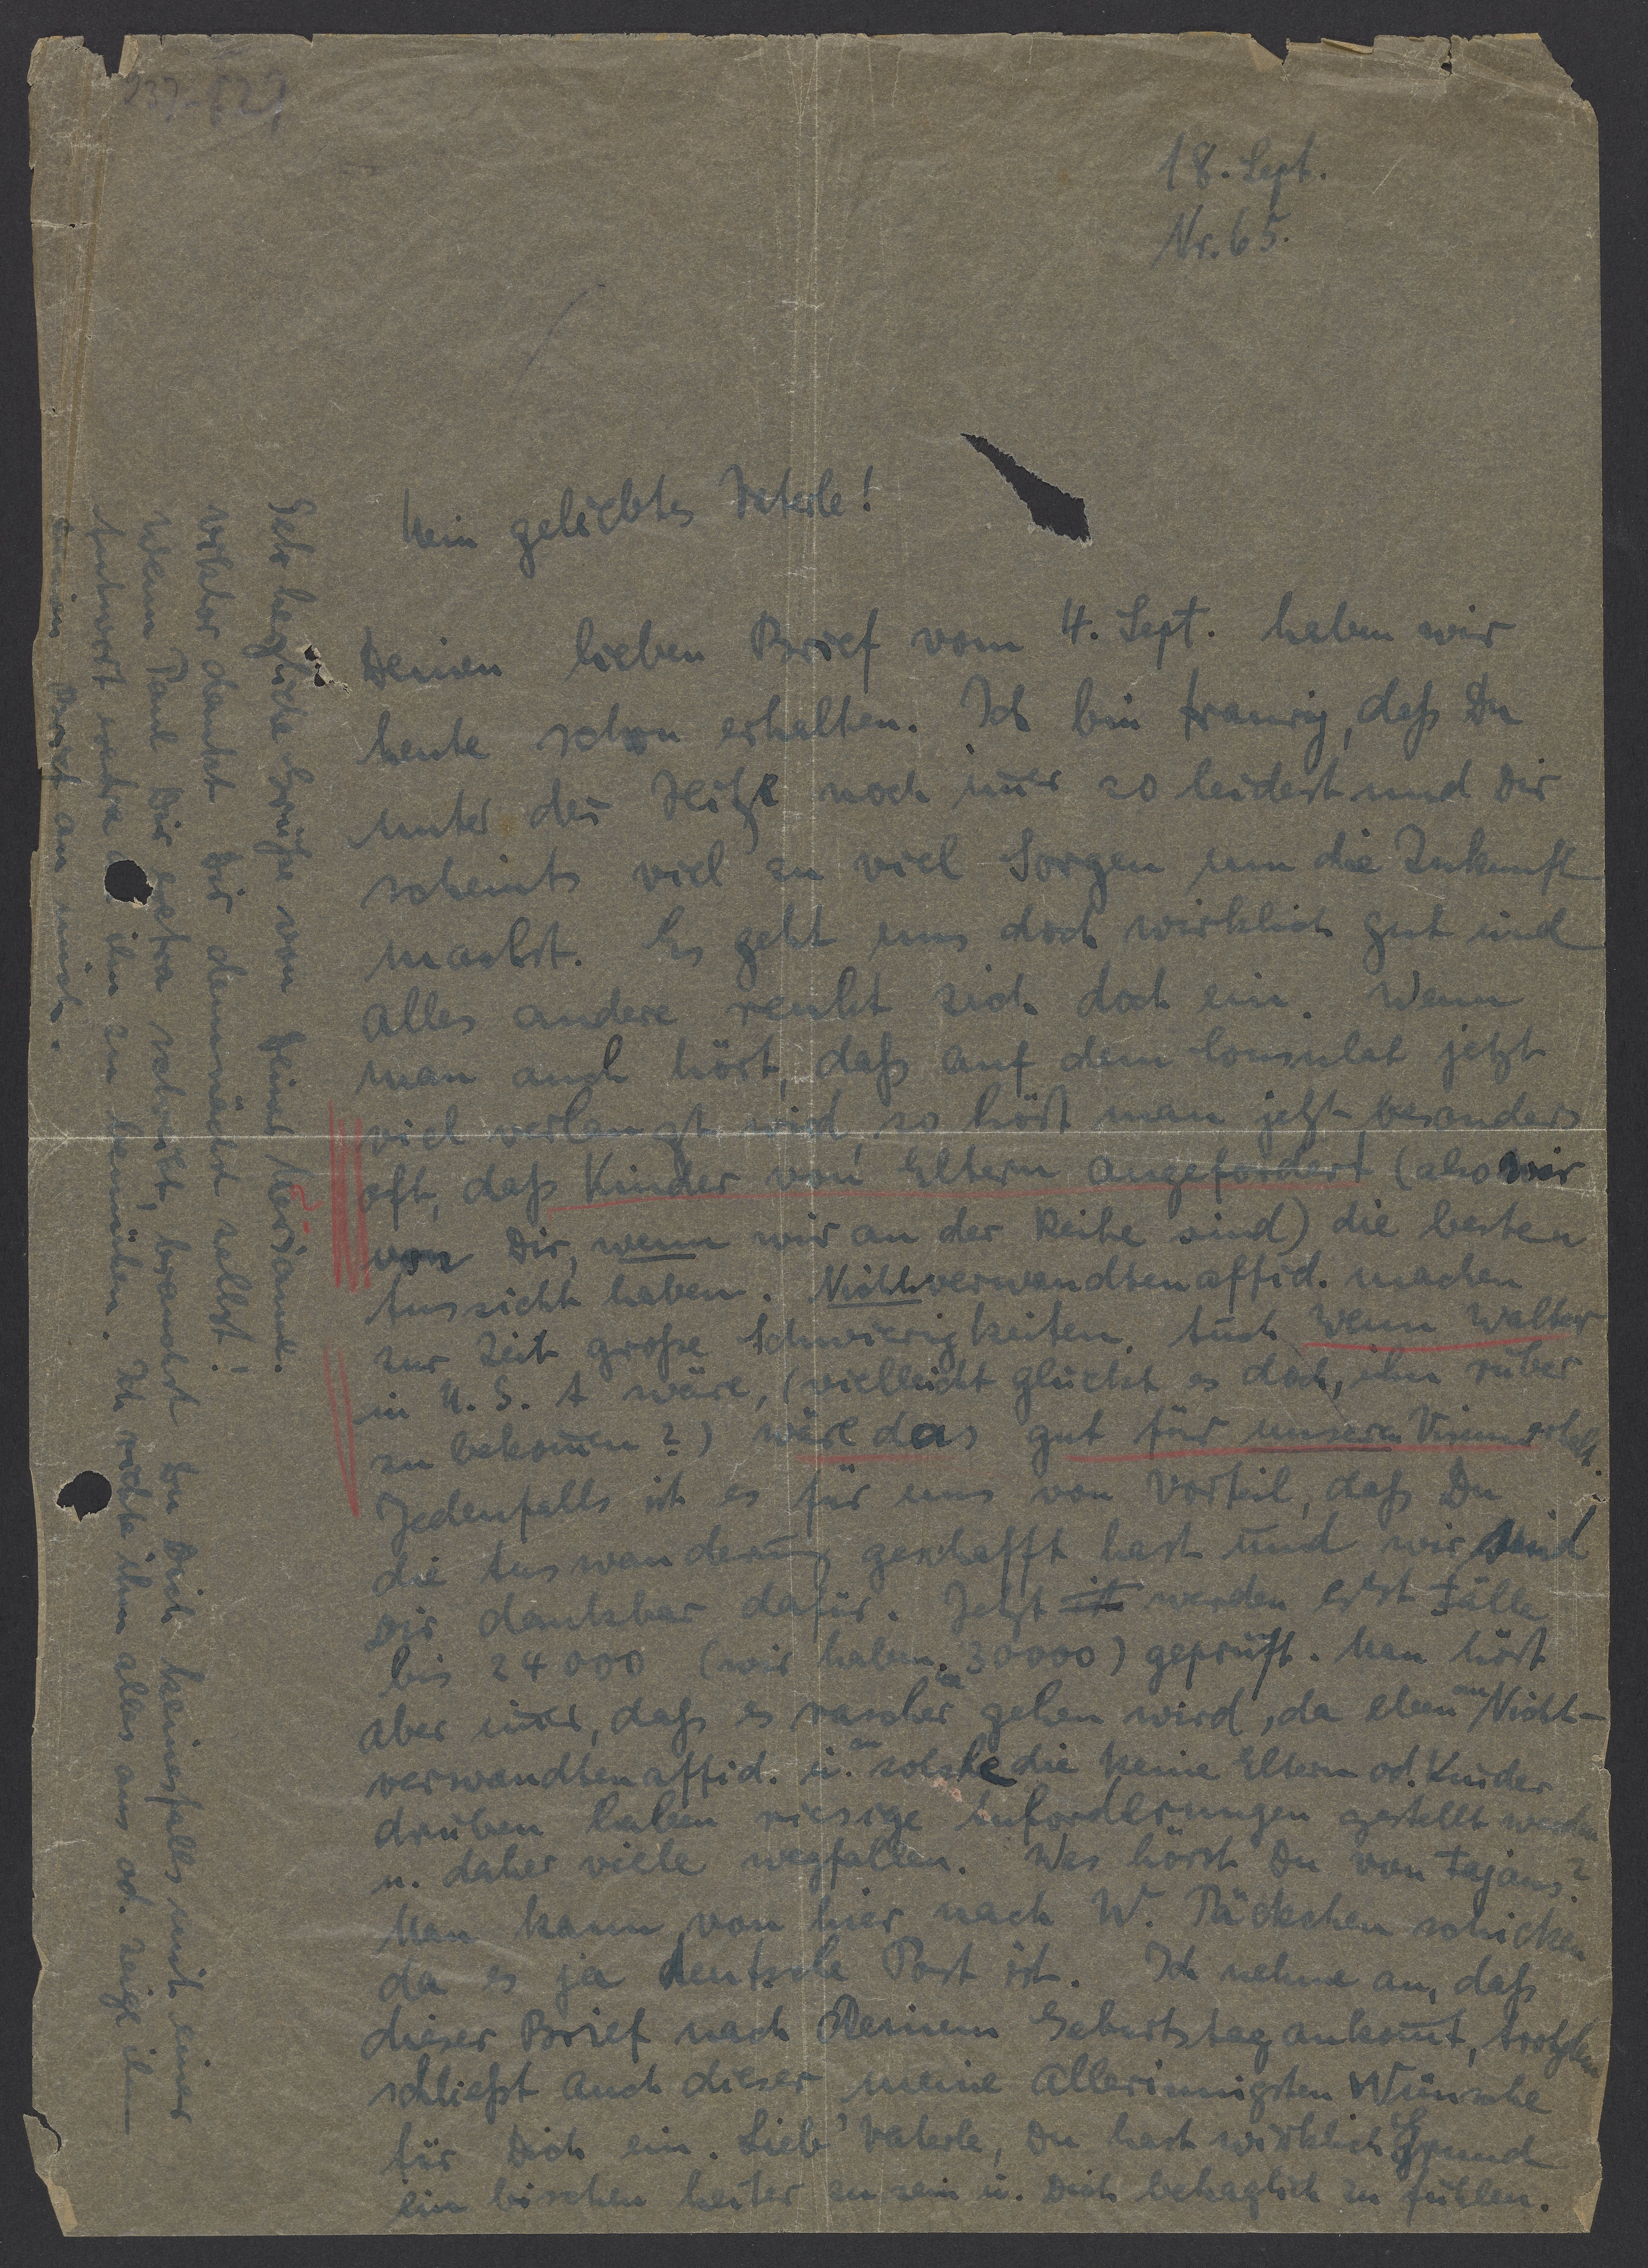 18. Sept.
Nr. 65.
Mein geliebtes Vaterle!
Deinen lieben Brief vom 4. Sept. haben wir
heute schon erhalten. Ich bin traurig, daß Du
unter der Hitze noch im̄er so leidest und Dir
scheints viel zu viel Sorgen um die Zukunft
machst. Es geht uns doch wirklich gut und
alles andere renkt sich doch ein. Wenn
man auch hört, daß auf dem Consulat jetzt
viel verlangt wird, so hört man jetzt besonders
oft, daß Kinder von Eltern angefordert (also wir
von Dir, wenn wir an der Reihe sind) die besten
Aussicht haben. Nichtverwandtenaffid. machen
zur Zeit große Schwierigkeiten. Auch wenn Walter
in U.S.A wäre, (vielleicht glückt es doch, ihn rüber
zu bekom̄en?) wäre das gut für unseren Visum
Jedenfalls ist es für uns von Vorteil, daß Du
die Auswanderung geschafft hast und wir sind
Dir dankbar dafür. Jetzt werden erst Fälle
bis 24000 (wir haben 30000) geprüft. Man hört
aber im̄er, daß es rascher gehen wird, da eben an Nicht-
verwandtenaffid. u. an solche die keine Eltern od. Kinder
drüben haben riesige Anforderungen gestellt werden
u. daher viele wegfallen. Was hörst Du von Fajans?
Man kann von hier nach W. Päckchen schicken
da es ja deutsche Post ist. Ich nehme an, daß
dieser Brief nach Deinem Geburtstag ankom̄t, trotzdem
schließt auch dieser meine allerinnigsten Wünsche
für Dich ein. Lieb' Vaterle, Du hast wirklich Grund
ein bischen heiter zu sein u. Dich behaglich zu fühlen.
Sehr herzliche Grüße von
Viktor dankt Dir demnächst selbst! -
Wenn Paul Dir extra schreibt, brauchst Du Dich keinesfalls mit einer
Antwort extra ihn zu bemühen. Ich richte ihm alles aus od. zeige ihm
Brief an mich.